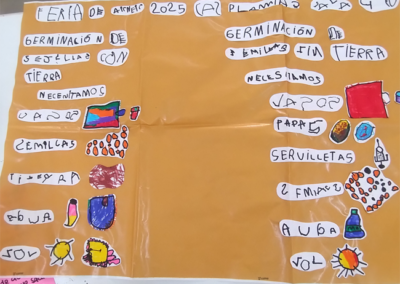 FERIA DE 2025 LAS PLANTAS
GERMINACIÓN DE
SEMILLAS CON
TIERRA
NECESITAMOS
VASOS
SEMILLAS
TIERRA
AGUA
SOL
GERMINACIÓN DE
SEMILLAS SIN TIERRA
NECESITAMOS
VASOS
PAPAS
SERVILLETAS
SEMILLAS
AUGA
SOL